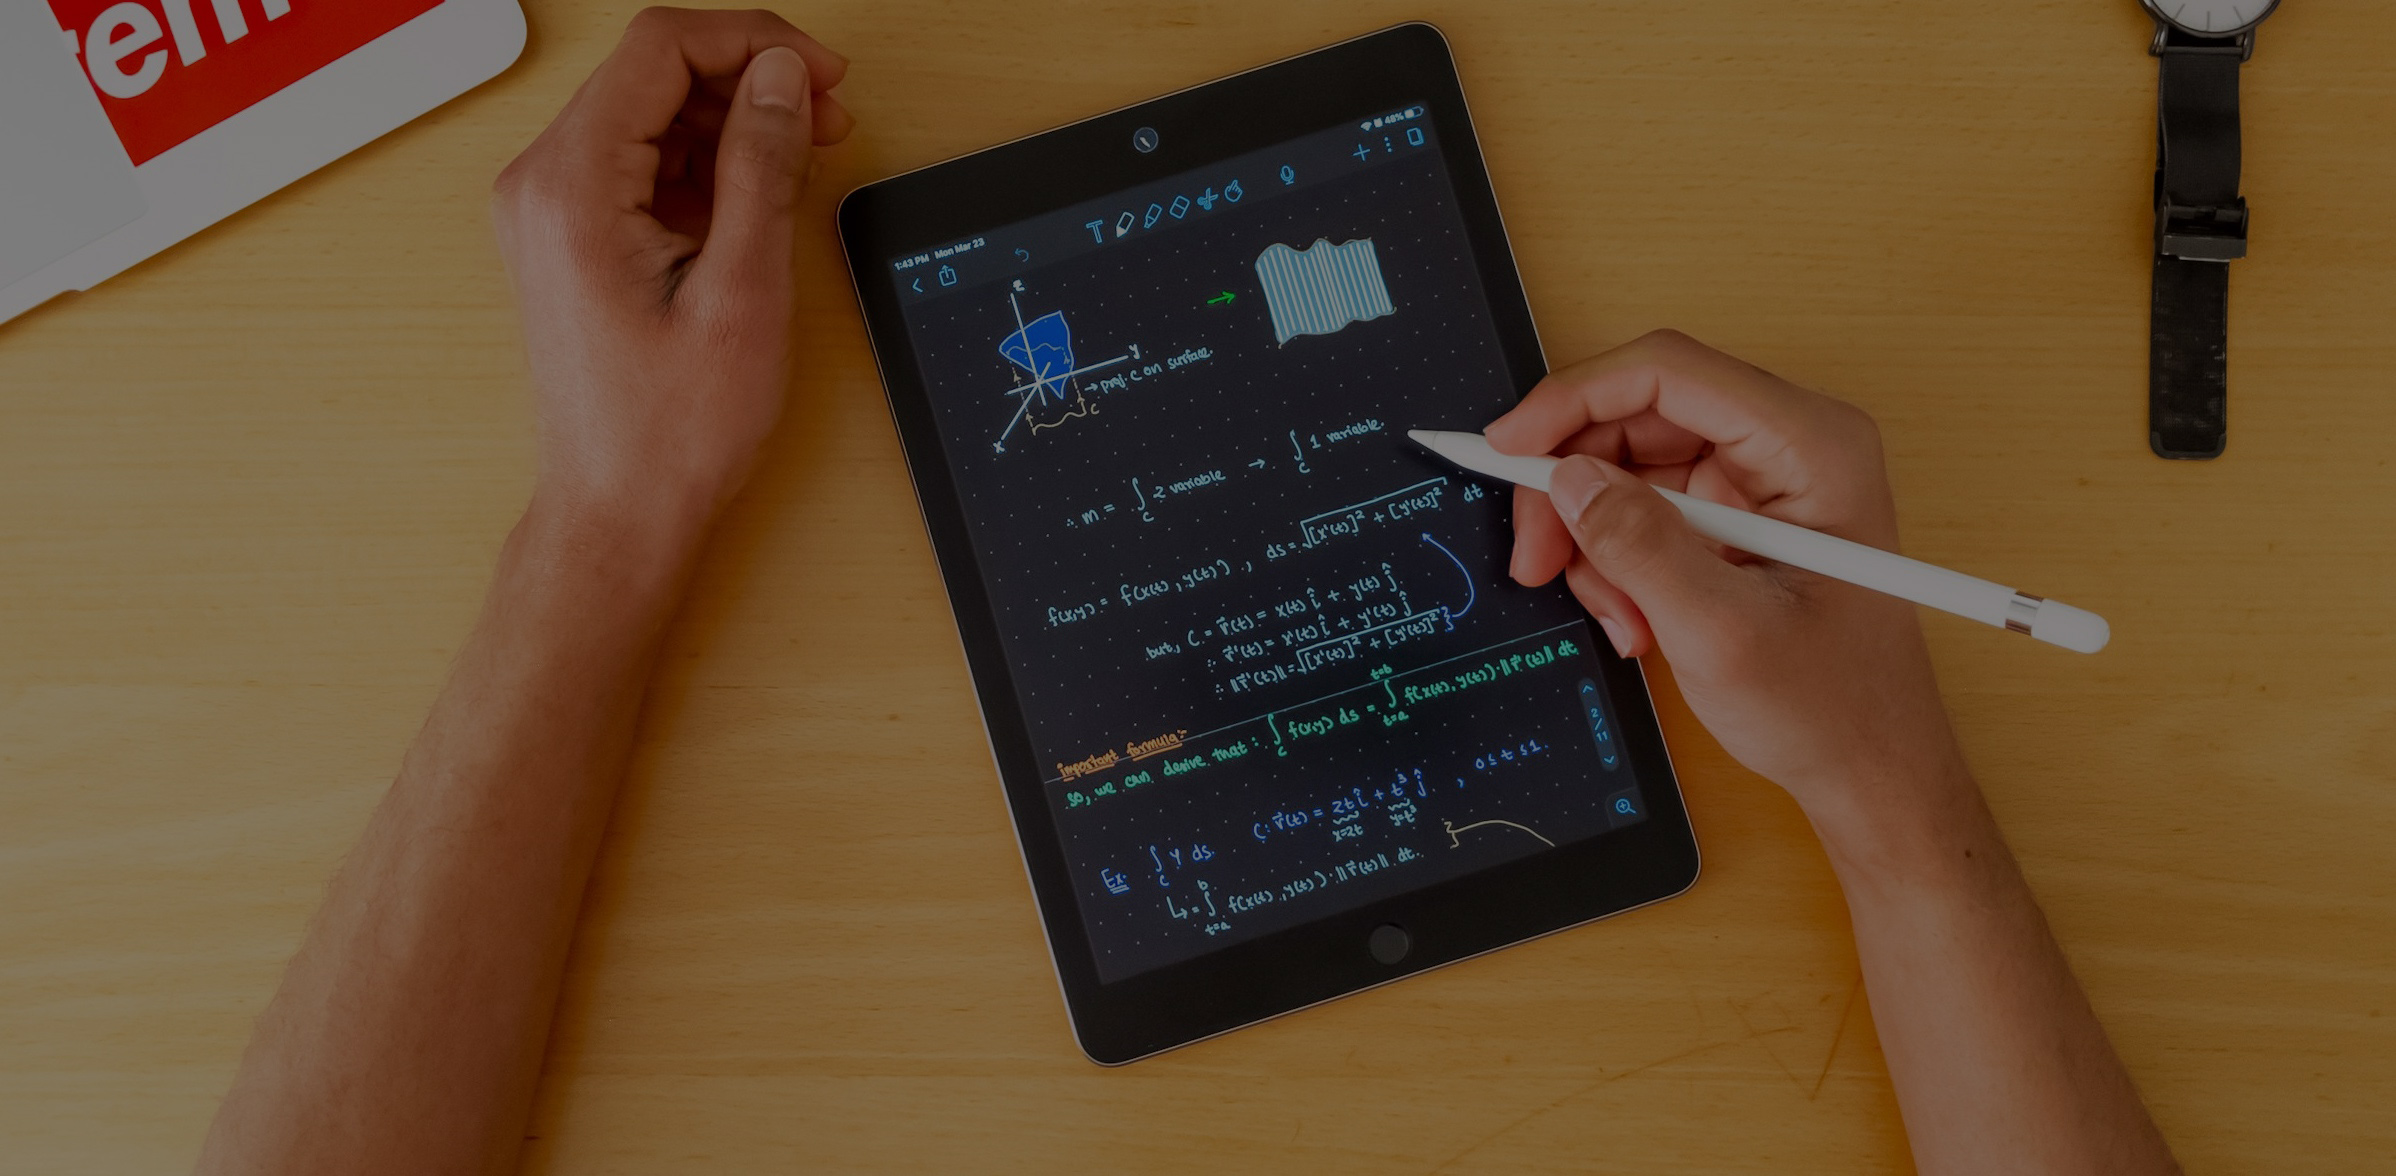 tem
1:43 PM Mon Mar 23
48%
T
z
y
x
C
→ proj. C on surface.
∴ m = ∫_C 2 variable → ∫_C 1 variable.
f(x,y) = f(x(t), y(t)) , ds = √([x'(t)]² + [y'(t)]²) dt
but, C = r⃗(t) = x(t) î + y(t) ĵ
∴ r⃗'(t) = x'(t) î + y'(t) ĵ
∴ ||r⃗'(t)|| = √([x'(t)]² + [y'(t)]²) }
important formula:-
so, we can derive that : ∫_C f(x,y) ds = ∫_{t=a}^{t=b} f(x(t), y(t)) · ||r⃗'(t)|| dt.
2/11
Ex. ∫_C y ds. C: r⃗(t) = 2t î + t³ ĵ , 0 ≤ t ≤ 1.
x=2t y=t³
↳ = ∫_{t=a}^{b} f(x(t), y(t)) · ||r⃗(t)|| dt.